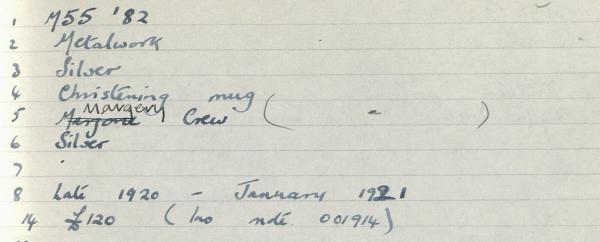 1 M55 '82
2 Metalwork
3 Silver
4 Christening mug
Margery
5 Marjorie Crew ( - )
6 Silver
7 .
8 Late 1920 - January 1921
14 £120 ( no. 001914)